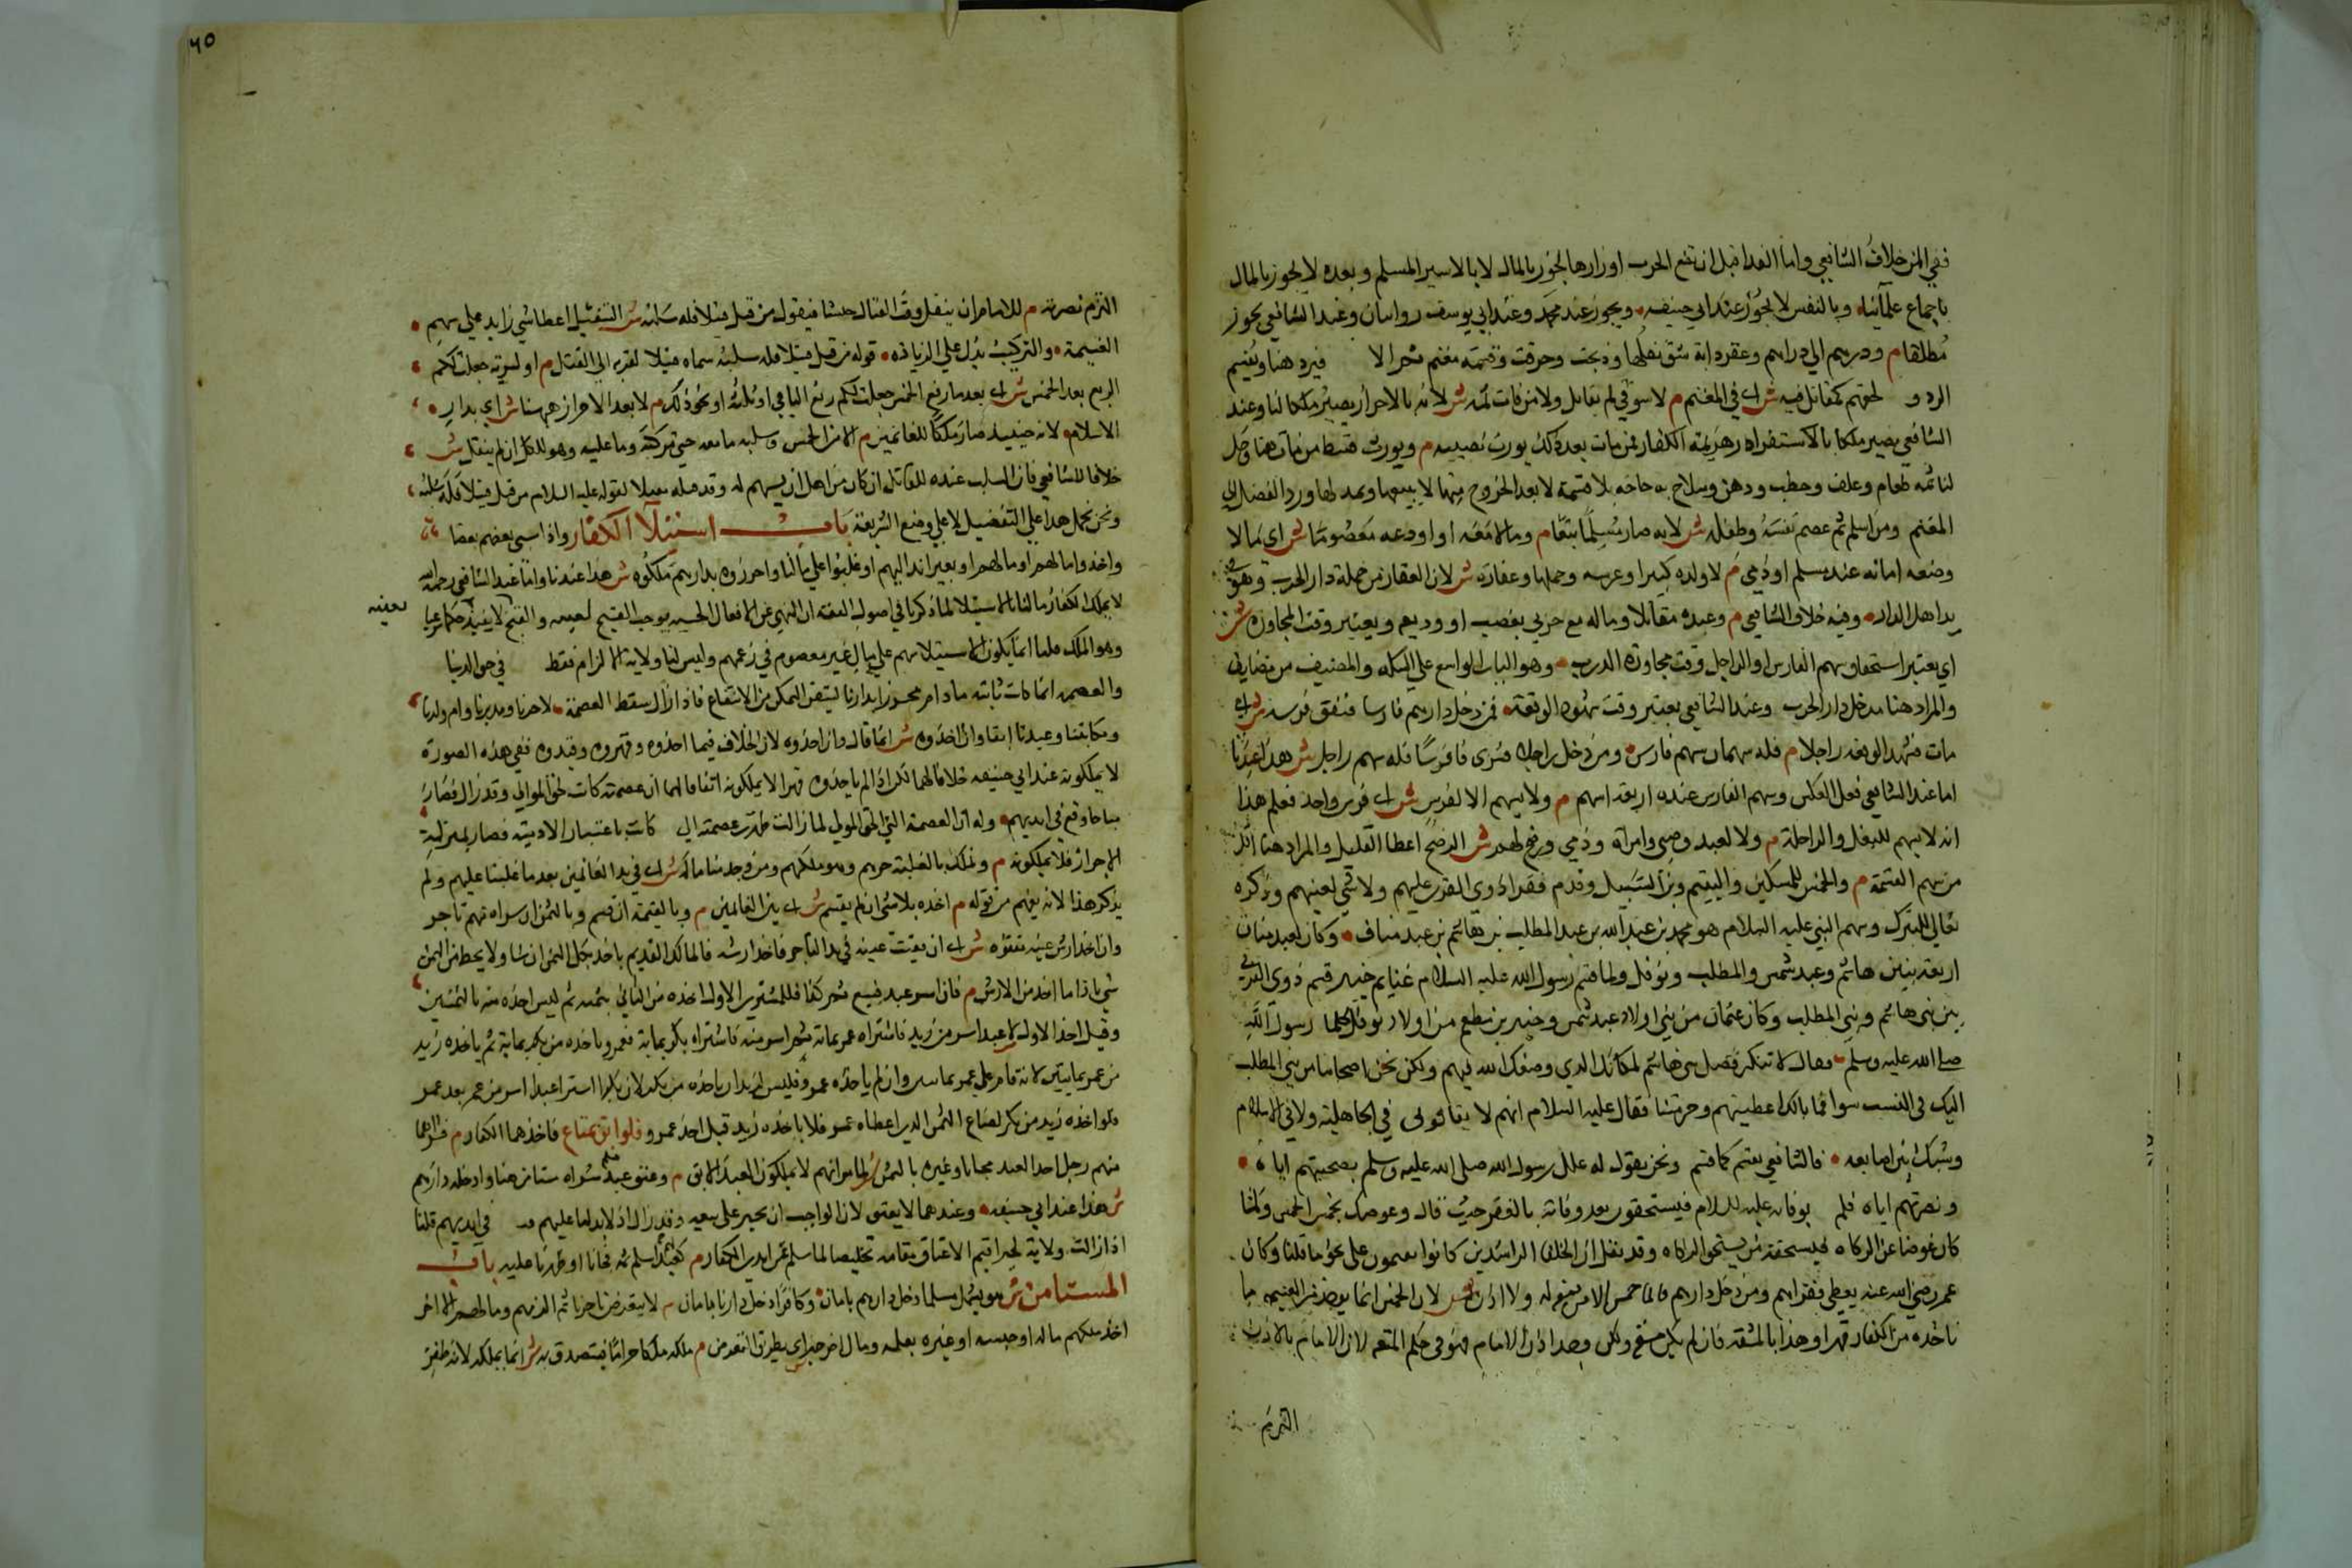 ففي المن خلاف الشافعي واما الفدا قبل ان تضع الحرب اوزارها يجوز بالمال لا بالاسير المسلم وبعده لا يجوز بالمال
باجماع علمائنا وبالنفس لا يجوز عند ابي حنيفه ويجوز عند محمد وعند ابي يوسف روايتان وعند الشافعي يجوز
مطلقا م وردهم الي دارهم وعقر دابة شق نقلها وذبحت وحرقت وقسمة مغنم ثمه الا فيرد هنا ويقسم
الردو لحقهم كمقاتل فيه ش اي في المغنم م لا سوقي لم يقاتل ولا من مات ثمه ش لانه بالاحراز يصير ملكا لنا وعند
الشافعي يصير ملكا بالاستقرار هزيمة الكفار فمن مات بعد ذلك يورث نصيبه م ويورث قسط من مات هنا وحل
لنا ثمه طعام وعلف وحطب ودهن وسلاح به حاجة بلا قسمة لا بعد الخروج منها لا بيعها ورد الفضل الي
المغنم ومن اسلم ثم عصم نفسه وطفله ش لانه صار مسلما تبعا م وما لا معه او اودعه معصوما ش اي مالا
وضعه امانه عند مسلم او ذمي م لا ولده كبيرا وعرسه وحملها وعقاره ش لان العقار من جملة دار الحرب وهو في
يد اهل الدار وفيه خلاف الشافعي م وعبده مقاتلا وماله مع حربي بغصب او وديعة ويعتبر وقت المجاوزة ش
اي يعتبر استحقاق سهم الفارس او الراجل وقت مجاوزة الدرب وهو الباب الواسع علي السكة والمضيق من مضايق
والمراد هنا مدخل دار الحرب وعند الشافعي يعتبر وقت شهود الوقعة فمن دخل دارهم فارسا فنفق فرسه ش اي
مات فشهد الوقعه راجلا م فله سهمان سهم فارس ومن دخل راجلا فشري فرسا فله سهم راجل ش هذا عندنا
اما عند الشافعي فعلي العكس وسهم الفارس عنده اربعة اسهم م ولا يسهم الا لفرس ش اي فرس واحد فعلم هذا
انه لا يسهم للبغل والراحلة م ولا لعبد وصبي وامراة وذمي ورضخ لهم ش الرضخ اعطا القليل والمراد هنا اقل
من سهم القسمة م والخمس للمسكين واليتيم وابن السبيل وقدم فقرا ذوي القربي عليهم ولا شي لغنيهم وذكره
تعالي للتبرك وسهم النبي عليه السلام هو محمد بن عبد الله بن عبد المطلب بن هاشم بن عبد مناف وكان لعبد مناف
اربعة بنين هاشم وعبد شمس والمطلب ونوفل ولما قسم رسول الله عليه السلام غنايم خيبر قسم ذوي القربي
بين بني هاشم وبني المطلب وكان عثمان من بني اولاد عبد شمس وجبير بن مطعم من اولاد نوفل رسول الله
صلي الله عليه وسلم فقالا لا ننكر فضل بني هاشم لمكانك الذي وضعك الله فيهم ولكن نحن واصحابنا من بني المطلب
اليك في النسب سوا فما بالك اعطيتهم وحرمتنا فقال عليه السلام انهم لا يفارقوني في الجاهلية ولا في الاسلام
وشبك بين اصابعه فالشافعي يقسم كما قسم ونحن نقول له علل رسول الله صلي الله عليه وسلم بصحبتهم اياه
ونصرتهم اياه فلم بوفاته عليه السلام فيستحقون بعد وفاته بالفقر حيث قال وعوضكم بخمس الخمس ولما
كان عوضا عن الزكاه فيستحقه من يستحق الزكاه وقد نقل ان الخلفا الراشدين كانوا يقسمون علي نحو ما قلنا وكان
عمر رضي الله عنه يعطي فقراهم ومن دخل دارهم فاغار خمس الا من لا منعة له ولا اذن ش لان الخمس انما يوخذ من الغنيمه ما
ناخذه من الكفار قهرا وهذا بالمنعة فان لم يكن منع ولكن وجد اذن الامام فهو في حكم المنعه لان الامام بالاذن
التزم
٦٥
التزم نصرته م للامام ان ينفل وقت القتال حثا فيقول من قتل قتيلا فله سلبه ش التنفيل اعطا شي زايد علي سهم
الغنيمة والتركيب يدل علي الزيادة قوله من قتل قتيلا فله سلبه سماه قتيلا لقربه الي القتل م او لسرية جعلت لكم
الربع بعد الخمس ش اي بعد ما رفع الخمس جعلت لكم ربع الباقي او ثلثه او نحو ذلك م لا بعد الاحراز ههنا ش اي بدار
الاسلام لانه حينئذ صار ملكا للغانمين م الا من الخمس وسلبه ما معه حتي مركبه وما عليه وهو للكل ان لم ينفل ش
خلافا للشافعي فان السلب عنده للقاتل ان كان من اهل ان يسهم له وقد قتله مقبلا لقوله عليه السلام من قتل قتيلا فله سلبه
ونحن نحمل هذا علي التنفيل لا علي وضع الشريعة باب استيلا الكفار واذا سبي بعضهم بعضا
واخذوا مالهم او مالهم او بعير ند اليهم او غلبوا علي مالنا واحرزوه بدارهم ملكوه ش هذا عندنا واما عند الشافعي رحمه الله
لا يملك الكفار مالنا بالاستيلا لما ذكرنا في اصول الفقه ان النهي عن الافعال الحسيه يوجب القبح لعينه والقبح لعينه لا يفيد حكما شرعيا
وهو الملك قلنا انما يكون الاستيلا منهم علي مال غير معصوم في زعمهم وليس لنا ولاية الالزام فسقط في حق الدنيا
والعصمه انما كانت ثابته ما دام محرزا بدارنا ليتيقن التمكن من الانتفاع فاذا زال سقط العصمة لا حرنا ومدبرنا وام ولدنا
ومكاتبنا وعبدنا ابقا وان اخذوه ش انما قال وان اخذوه لان الخلاف فيما اخذوه وقهروه وقيدوه ففي هذه الصورة
لا يملكونه عند ابي حنيفه خلافا لهما لكن اذا لم ياخذوه قهرا لا يملكونه اتفاقا لهما ان عصمته كانت لحق الموالي وقد زال فصار
مباحا وقع في ايديهم وله ان العصمة التي لحق المولي لما زالت ظهرت عصمته التي كانت باعتبار الادمية فصار بمنزلة
الاحرار فلا يملكونه م ونملك بالغلبة حرهم وهو ملكهم ومن وجد منا ماله ش اي في يد الغانمين بعد ما غلبنا عليهم ولم
يذكر هذا لانه يفهم من قوله م اخذه بلا شي ان لم يقسم ش اي بين الغانمين م وبالقيمة ان قسم وبالثمن ان شراه منهم تاجر
وان اخذ ارش عينه مفقوه ش اي ان فقيت عينه في يد التاجر فاخذ ارشه فالمالك القديم ياخذ بكل الثمن ان شا ولا يحط من الثمن
شي بازا ما اخذ من الارش م فان اسر عبد فبيع ثم كذا فللمشتري الاول اخذه من الثاني بثمنه ثم لسيده اخذه منه بالثمنين
وقبل اخذ الاول لا عبد اسر من زيد فاشتراه عمرو بماية ثم اسر منه فاشتراه بكر بماية فعمرو ياخذه من بكر بماية ثم ياخذه زيد
من عمرو بمايتين لانه قام علي عمرو بمايتين وان لم ياخذه عمرو فليس لزيد ان ياخذه من بكر لان بكرا اشتري عبدا اسر من عمرو بعد
ولو اخذه زيد من بكر لضاع الثمن الذي اعطاه عمرو فلا ياخذه زيد قبل اخذ عمرو فلو ابق بمتاع فاخذهما الكفار م فشراهما
منهم رجل اخذ العبد مجانا وغيره بالثمن ش لما مر انهم لا يملكون العبد الابق م وعتق عبد مسلم شراه مستامن هنا وادخله دارهم
ش هذا عند ابي حنيفه وعندهما لا يعتق لان الواجب ان يجبر علي بيعه وقد زال اذ لا يد لنا عليهم في ايديهم قلنا
اذا زالت ولاية الجبر اقيم الاعتاق مقامه تخليصا للمسلم عن ايدي الكفار م كعبد لهم اسلم ثمه فجانا او ظهرنا عليهم باب
المستامن ش هو يشمل مسلما دخل دارهم بامان وكافرا دخل دارنا بامان م لا يتعرض تاجرنا ثمه لدمهم ومالهم الا اذا
اخذ ملكهم ماله او حبسه او غيره بعلمه وما اخرجه اي بطريق التعرض م ملكه ملكا حراما فيتصدق به ش انما يملكه لانه ظفر